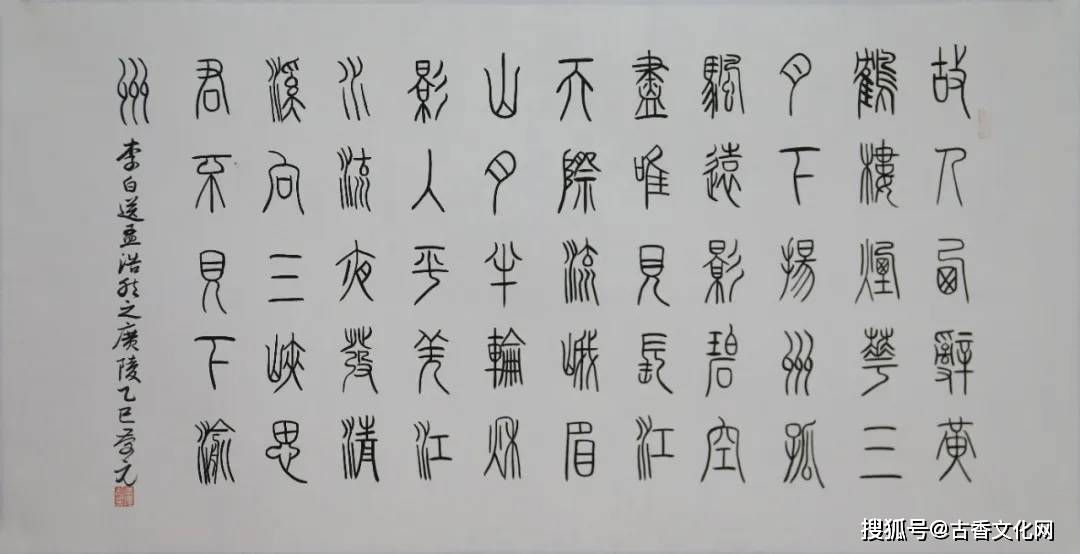 故人西辭黃
鶴樓煙華三
月下揚州孤
颿遠影碧空
盡唯見長江
天際流峨眉
山月半輪秋
影入平羌江
水流夜發清
溪向三峽思
君不見下渝
州
李白送孟浩然之廣陵乙巳元
搜狐号@古香文化网